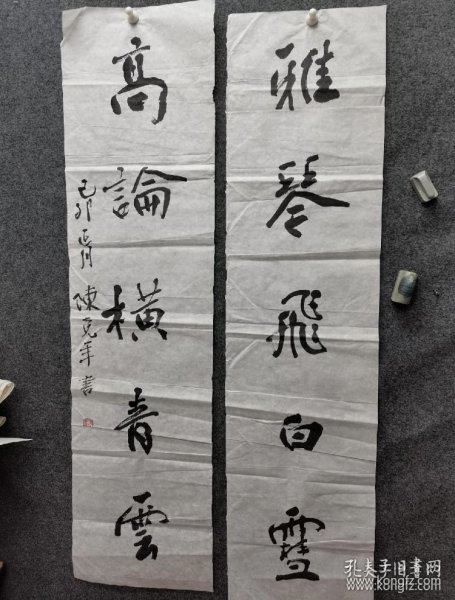 雅琴飛白雪
高論橫青雲
己卯正月 陳克年書
孔夫子旧書网
www.kongfz.com